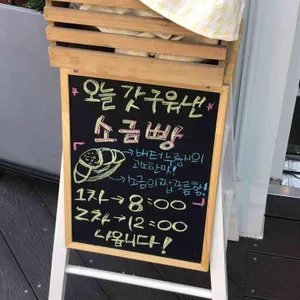 오늘 갓 구워낸
소금빵
버터누룽지의
고소한맛!
소금의 짭쪼름함!
1차→ 8:00
2차→12:00
나옵니다!